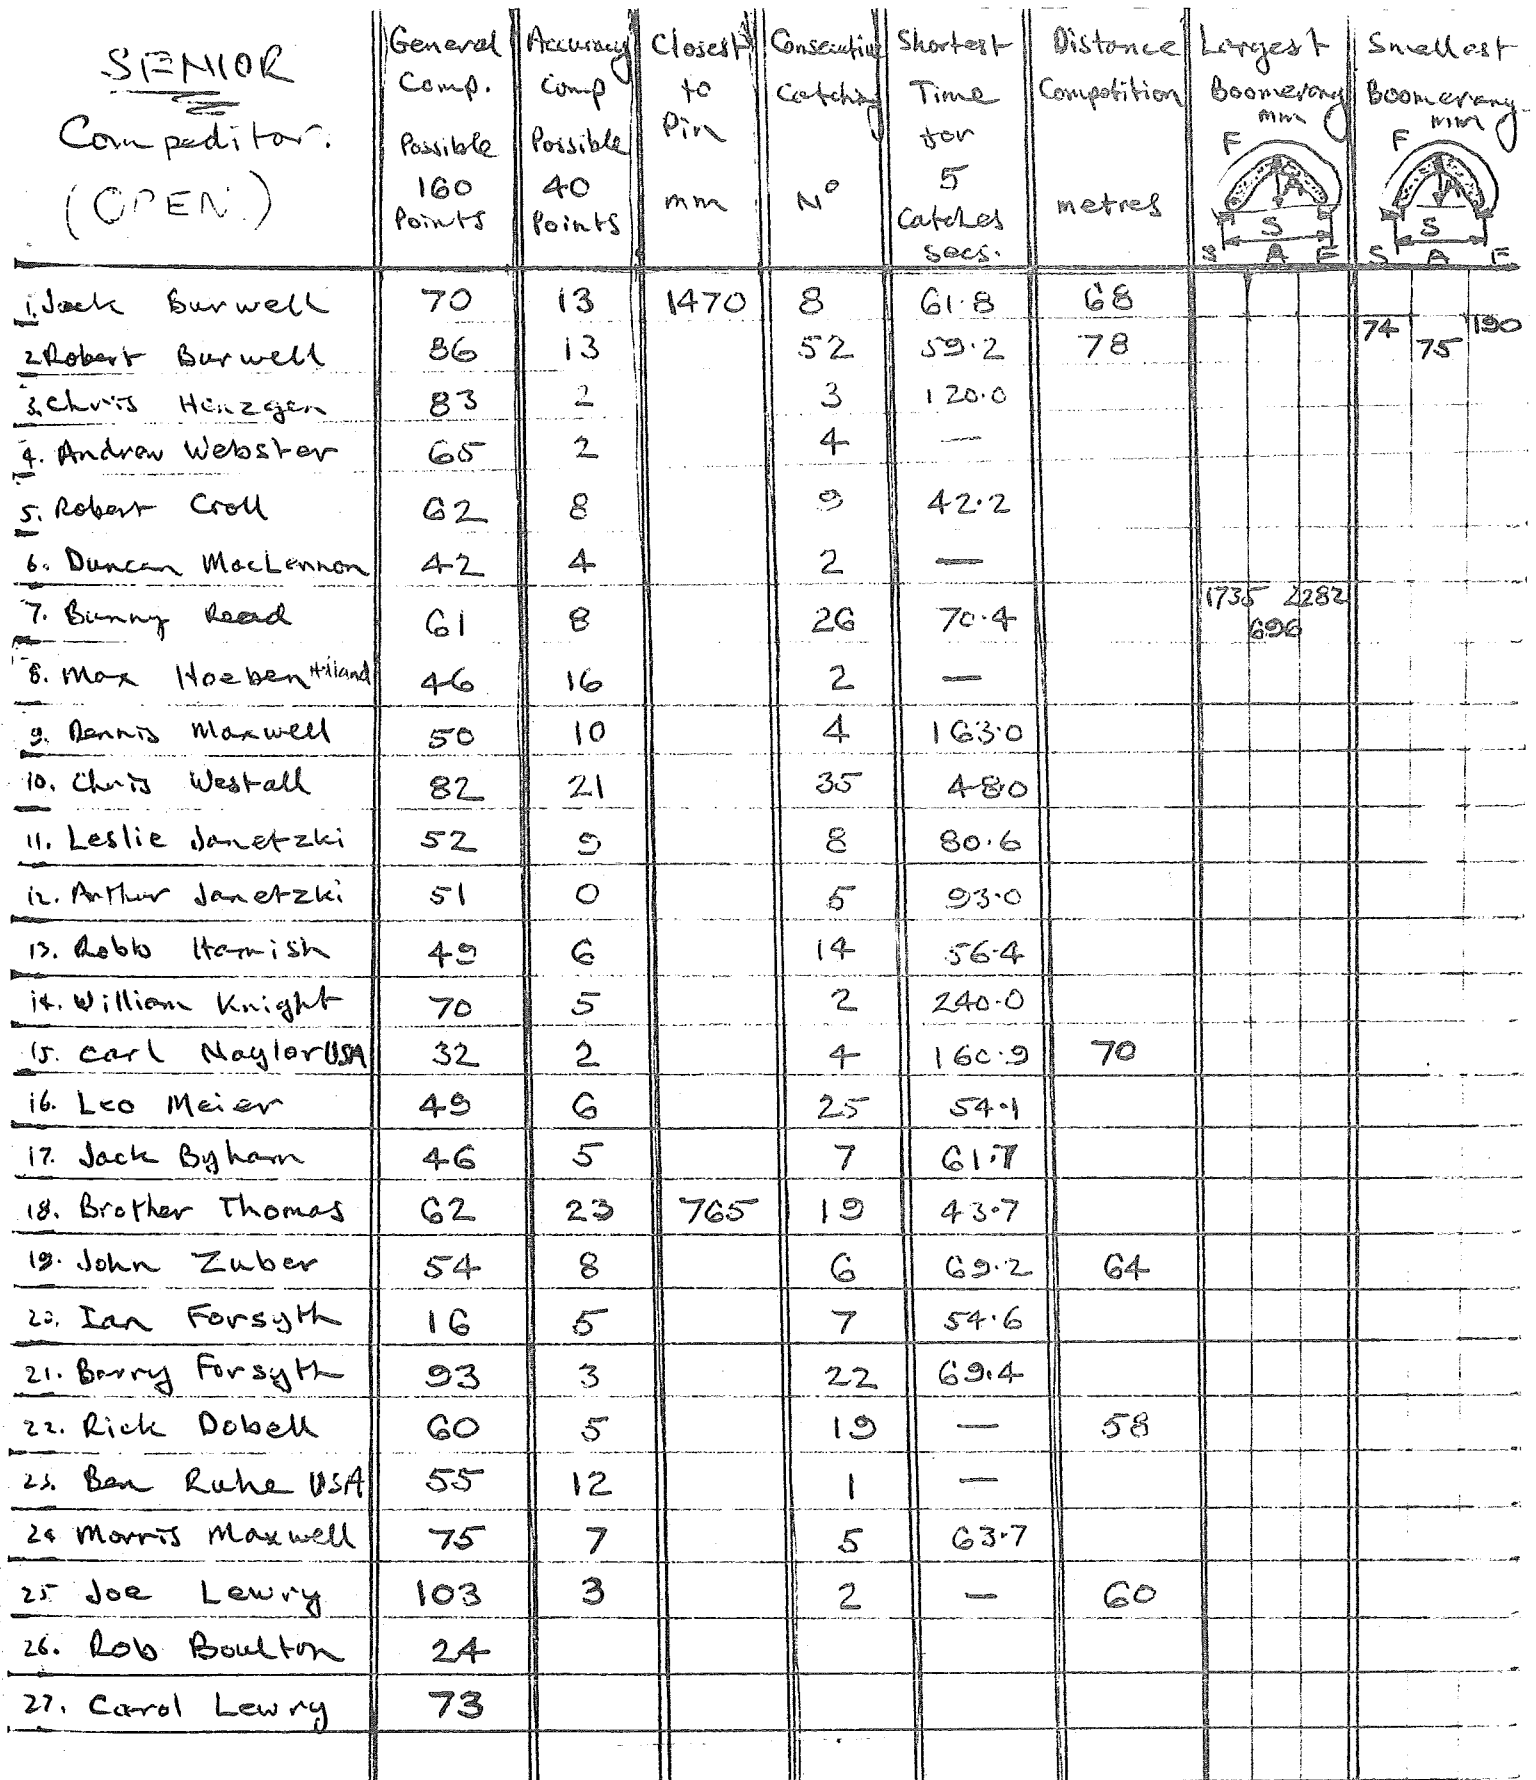 SENIOR
Competitor.
(OPEN.)
General Comp. Possible 160 Points
Accuracy Comp Possible 40 Points
Closest to Pin mm
Consecutive Catching Nº
Shortest Time for 5 Catches secs.
Distance Competition metres
Largest Boomerang mm F A S S A F
Smallest Boomerang mm F A S S A F
1. Jack Burwell 70 13 1470 8 61.8 68
2. Robert Burwell 86 13 52 59.2 78 74 75 190
3. Chris Henzgen 83 2 3 120.0
4. Andrew Webster 65 2 4 —
5. Robert Croll 62 8 9 42.2
6. Duncan MacLennon 42 4 2 —
7. Bunny Read 61 8 26 70.4 1735 696 2282
8. Max Hoeben 46 16 2 —
9. Dennis Maxwell 50 10 4 163.0
10. Chris Westall 82 21 35 48.0
11. Leslie Janetzki 52 9 8 80.6
12. Arthur Janetzki 51 0 5 93.0
13. Robb Hamish 49 6 14 56.4
14. William Knight 70 5 2 240.0
15. Carl Naylor USA 32 2 4 160.9 70
16. Leo Meier 49 6 25 54.1
17. Jack Byham 46 5 7 61.7
18. Brother Thomas 62 23 765 19 43.7
19. John Zuber 54 8 6 69.2 64
20. Ian Forsyth 16 5 7 54.6
21. Barry Forsyth 93 3 22 69.4
22. Rick Dobell 60 5 19 — 58
23. Ben Ruhe USA 55 12 1 —
24 Morris Maxwell 75 7 5 63.7
25 Joe Lewry 103 3 2 — 60
26. Rob Boulton 24
27. Carol Lewry 73